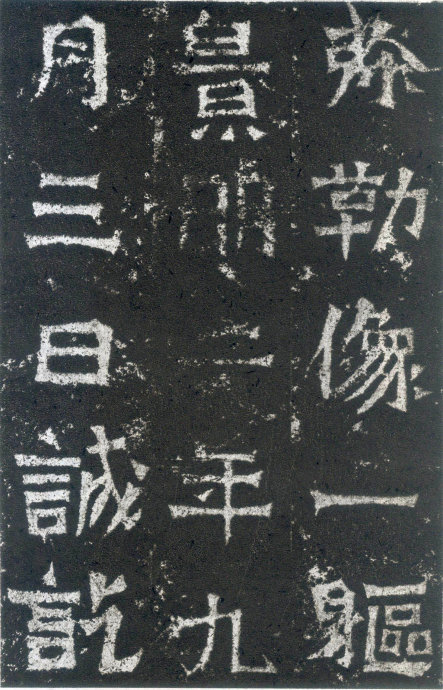 弥勒像一軀
景明二年九
月三日誠訖